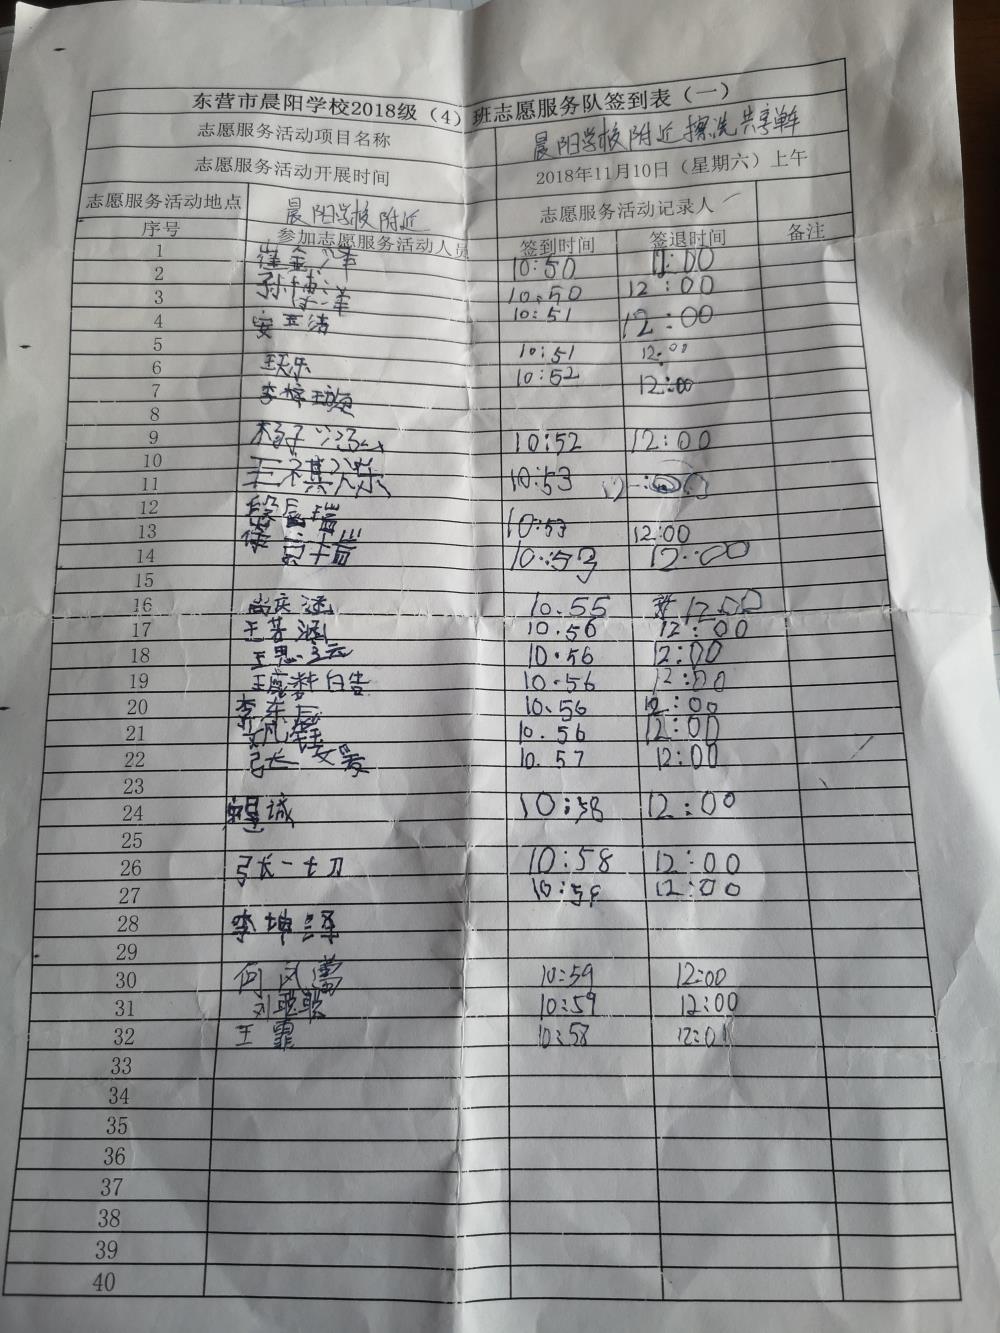 东营市晨阳学校2018级（4）班志愿服务队签到表（一）
志愿服务活动项目名称 晨阳学校附近擦洗共享单车
志愿服务活动开展时间 2018年11月10日（星期六）上午
志愿服务活动地点 晨阳学校附近 志愿服务活动记录人
序号 参加志愿服务活动人员 签到时间 签退时间 备注
1 10:50 12:00
2 孙博洋 10:50 12:00
3 10:51 12:00
4 安亚洁
5 10:51 12:00
6 王天乐 10:52 12:00
7 李梓
8
9 杨子 10:52 12:00
10 王祺
11 10:53 12:00
12 段辰瑞
13 10:53 12:00
14 10:53 12:00
15
16 尚庆涵 10.55 12:00
17 王若涵 10.56 12:00
18 王思 10.56 12:00
19 10.56 12:00
20 李东辰 10.56 12:00
21 10.56 12:00
22 张 10.57 12:00
23
24 诚 10:58 12:00
25
26 张一切 10:58 12:00
27 10:59 12:00
28 李坤泽
29
30 何 10:59 12:00
31 刘聪聪 10:59 12:00
32 王霏 10:58 12:01
33
34
35
36
37
38
39
40